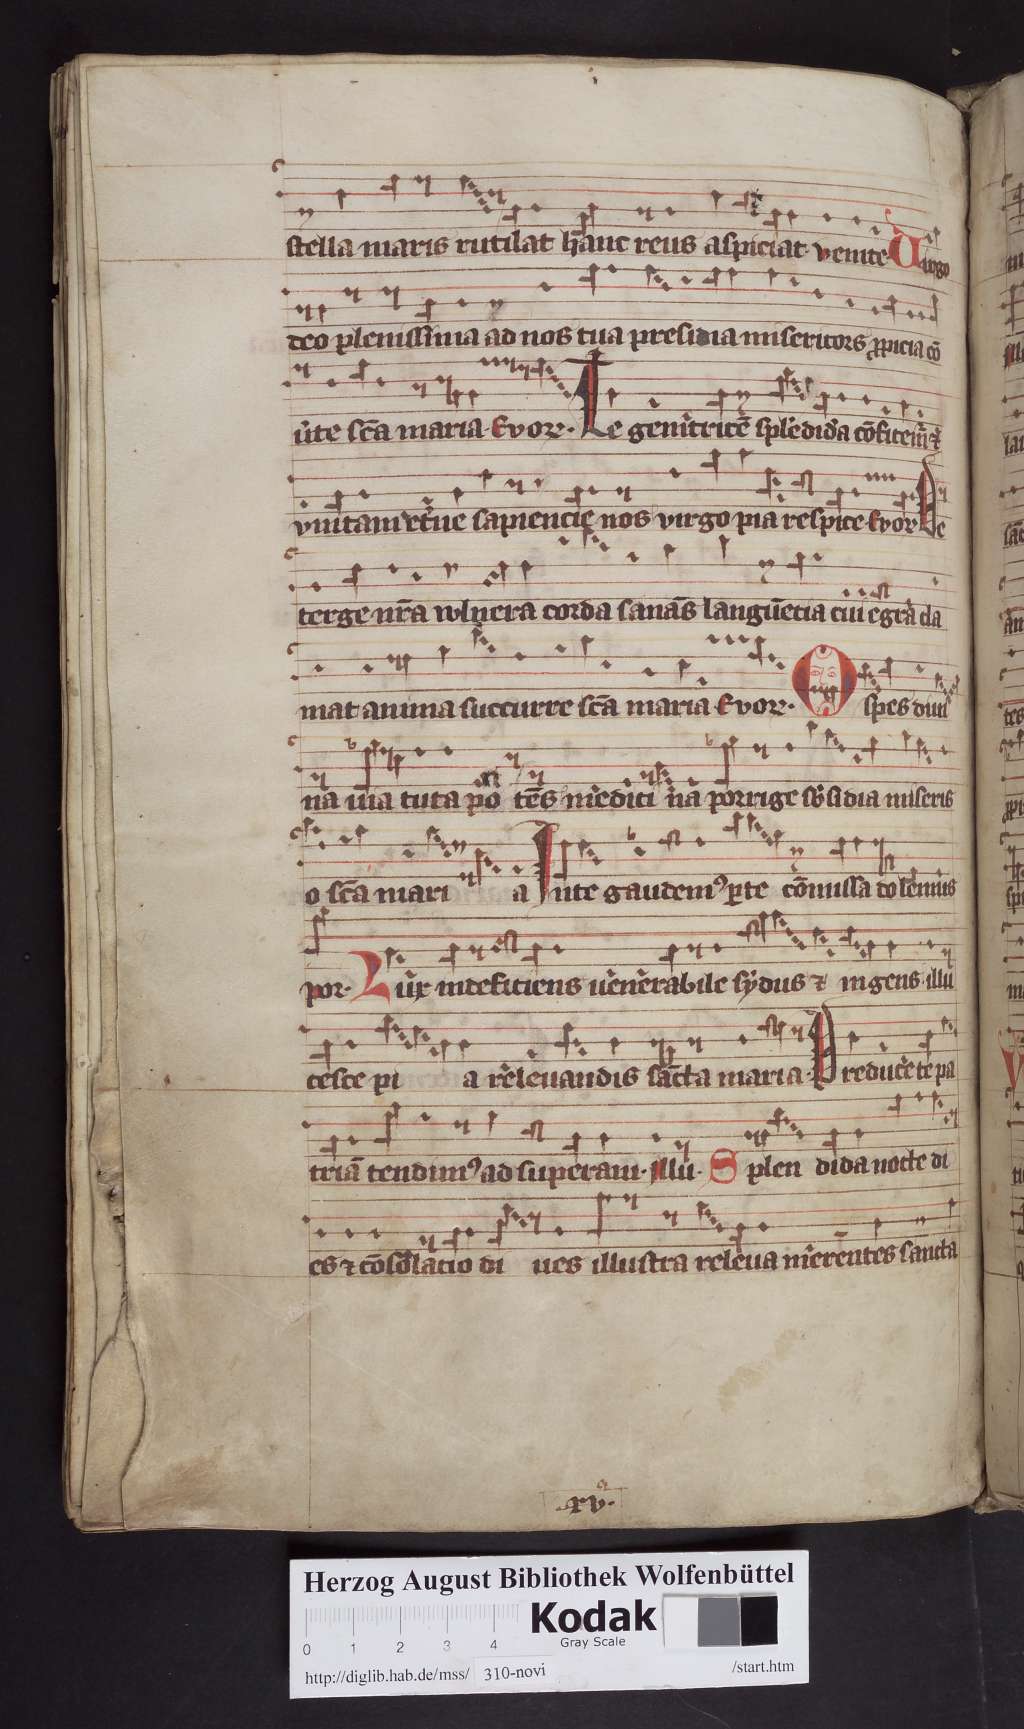 stella maris rutilat hanc reus aspiciat venite Uirgo
deo plenissima ad nos tua presidia misericors ꝓpicia cō
ū̇te sc̄a maria Evoꝛ. Te genitricē splēdida cōfitem̄ ⁊
vnitam et̄ne sapiencie nos virgo pia respice Evoꝛ De
terge nr̄a wlnera corda sanās langūecia cui egra cla
mat anima succurre sc̄a maria Evoꝛ. O spes diui
na uia tuta po tēs medici na porrige sb̄sidia miseris
o sc̄a mari a In te gaudemꝰ per te cōmissa dolemus
por. Lux indeficiens uenerabile sydus ⁊ ingens illu
cesce pi a releuandis sancta maria Pre duce te pa
triā tendimꝰ ad superam. Illu. Splen dida nocte di
es ⁊ cōsolatio di ues illustra releua merentes sancta
.xv.ᵃ
Herzog August Bibliothek Wolfenbüttel
Kodak
Gray Scale
0 1 2 3 4
http://diglib.hab.de/mss/ 310-novi /start.htm